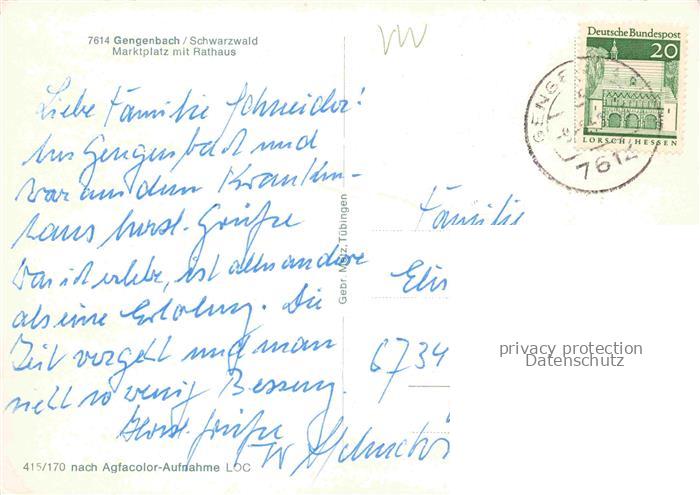 7614 Gengenbach / Schwarzwald
Marktplatz mit Rathaus
Liebe Familie Schneider!
Aus Gengenbach und
zwar aus dem Kranken-
haus herzl. Grüße
Was ich erlebe, ist alles andere
als eine Erholung. Die
Zeit vergeht und man
sieht so wenig Besserung.
Herzl. Grüße
415/170 nach Agfacolor-Aufnahme LOC
Gebr. Metz, Tübingen
Deutsche Bundespost
20
LORSCH/HESSEN
7614
Familie
Elis
6734
privacy protection
Datenschutz